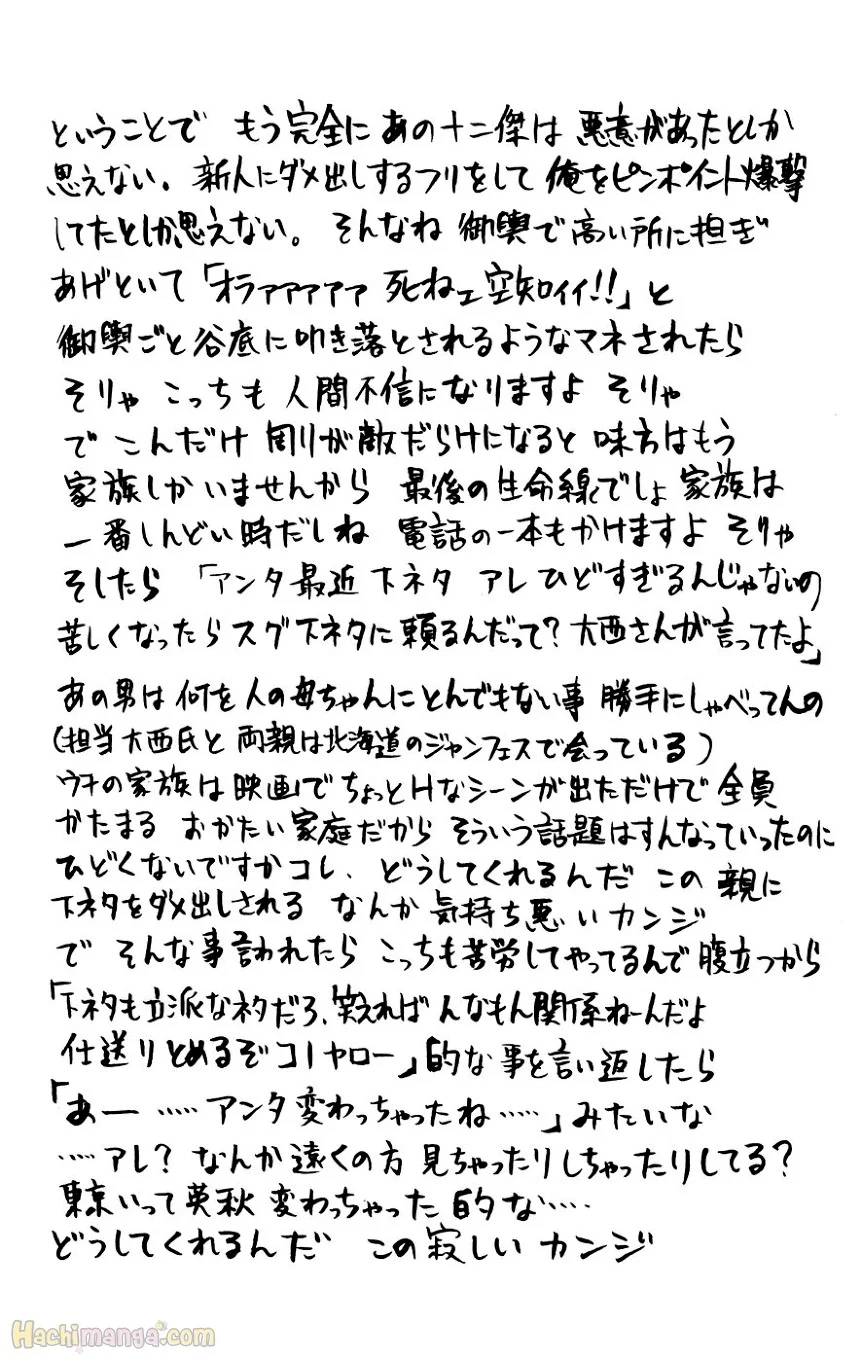 ということで もう完全にあの十二傑は 悪意があったとしか
思えない。新人にダメ出しするフリをして 俺をピンポイント爆撃
してたとしか思えない。そんなね 御輿で高い所に担ぎ
あげといて「オラァァァァァ 死ねェ空知ィィ!!」と
御輿ごと谷底に叩き落とされるようなマネされたら
そりゃ こっちも人間不信になりますよ そりゃ
で こんだけ 周りが敵だらけになると 味方はもう
家族しかいませんから 最後の生命線でしょ 家族は
一番しんどい時だしね 電話の一本もかけますよ そりゃ
そしたら 「アンタ最近 下ネタ アレひどすぎるんじゃないの
苦しくなったらスグ下ネタに頼るんだって?大西さんが言ってたよ」
あの男は何を人の母ちゃんにとんでもない事 勝手にしゃべってんの
(担当大西氏と 両親は北海道のジャンフェスで会っている)
ウチの家族は映画でちょっとHなシーンが出ただけで 全員
かたまる おかたい家庭だから そういう話題はすんなっていったのに
ひどくないですかコレ、どうしてくれるんだ この 親に
下ネタをダメ出しされる なんか 気持ち悪いカンジ
で そんな事言われたら こっちも苦労してやってるんで腹立つから
「下ネタも立派なネタだろ、笑えれば んなもん関係ねーんだよ
仕送りとめるぞコノヤロー」的な事を言い返したら
「あー ……アンタ変わっちゃったね……」みたいな
……アレ? なんか遠くの方 見ちゃったりしちゃったりしてる?
東京いって英秋 変わっちゃった 的な……
どうしてくれるんだ この寂しい カンジ
Hachimanga.com